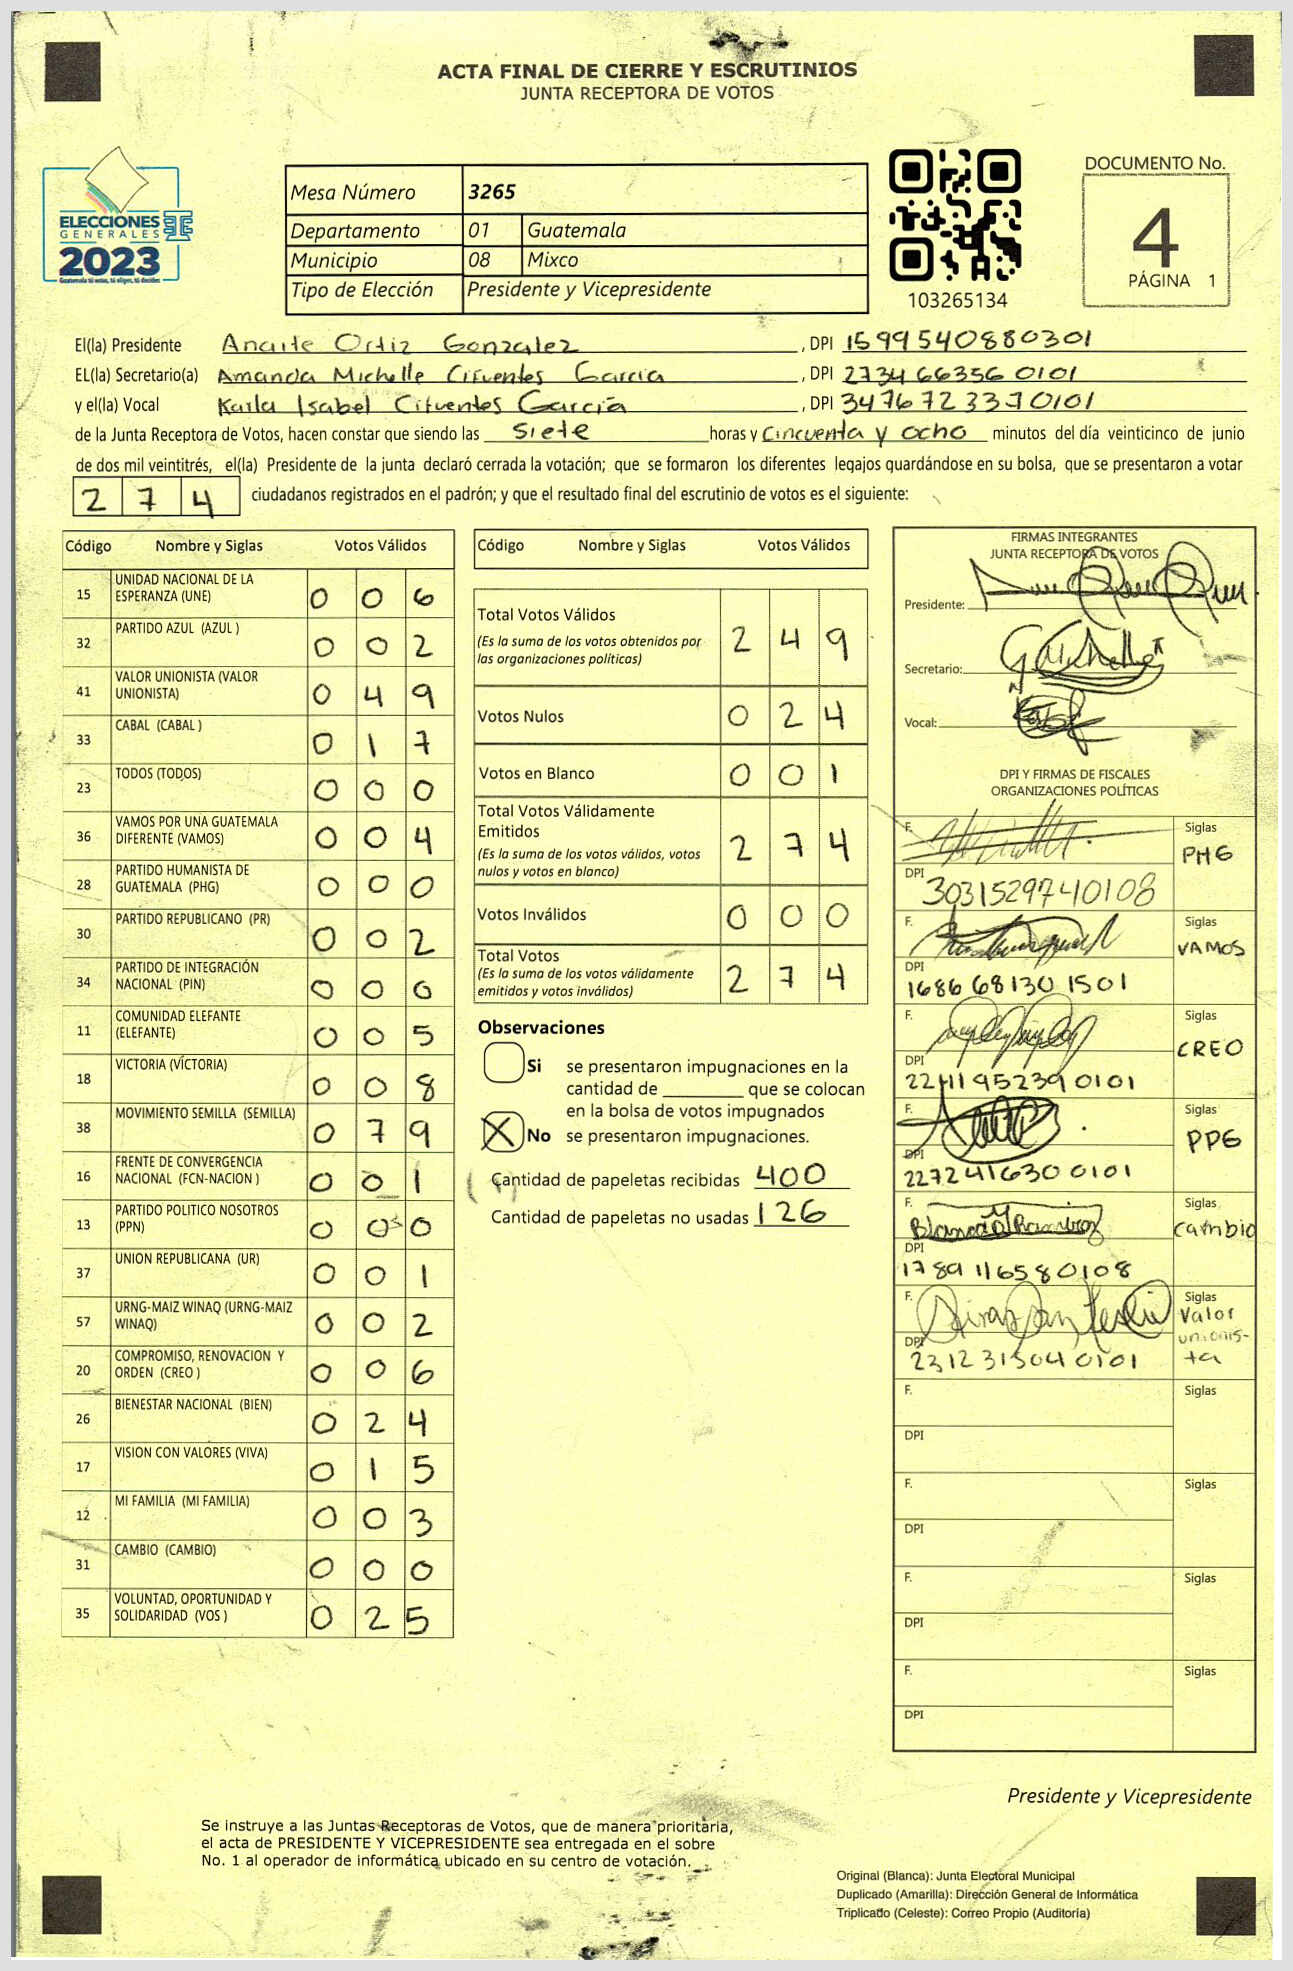 ACTA FINAL DE CIERRE Y ESCRUTINIOS
JUNTA RECEPTORA DE VOTOS
ELECCIONES
GENERALES
2023
Guatemala tú votas, tú eliges, tú decides
Mesa Número 3265
Departamento 01 Guatemala
Municipio 08 Mixco
Tipo de Elección Presidente y Vicepresidente
103265134
DOCUMENTO No.
4
PÁGINA 1
El(la) Presidente Anaite Ortiz Gonzalez, DPI 1599540880301
EL(la) Secretario(a) Amanda Michelle Cifuentes Garcia, DPI 2734 66356 0101
y el(la) Vocal Karla Isabel Cifuentes García, DPI 3476723370101
de la Junta Receptora de Votos, hacen constar que siendo las siete horas y cincuenta y ocho minutos del día veinticinco de junio
de dos mil veintitrés, el(la) Presidente de la junta declaró cerrada la votación; que se formaron los diferentes legajos quardándose en su bolsa, que se presentaron a votar
2 7 4 ciudadanos registrados en el padrón; y que el resultado final del escrutinio de votos es el siguiente:
Código Nombre y Siglas Votos Válidos
15 UNIDAD NACIONAL DE LA ESPERANZA (UNE) 0 0 6
32 PARTIDO AZUL (AZUL ) 0 0 2
41 VALOR UNIONISTA (VALOR UNIONISTA) 0 4 9
33 CABAL (CABAL ) 0 1 7
23 TODOS (TODOS) 0 0 0
36 VAMOS POR UNA GUATEMALA DIFERENTE (VAMOS) 0 0 4
28 PARTIDO HUMANISTA DE GUATEMALA (PHG) 0 0 0
30 PARTIDO REPUBLICANO (PR) 0 0 2
34 PARTIDO DE INTEGRACIÓN NACIONAL (PIN) 0 0 0
11 COMUNIDAD ELEFANTE (ELEFANTE) 0 0 5
18 VICTORIA (VICTORIA) 0 0 8
38 MOVIMIENTO SEMILLA (SEMILLA) 0 7 9
16 FRENTE DE CONVERGENCIA NACIONAL (FCN-NACION ) 0 0 1
13 PARTIDO POLITICO NOSOTROS (PPN) 0 0 0
37 UNION REPUBLICANA (UR) 0 0 1
57 URNG-MAIZ WINAQ (URNG-MAIZ WINAQ) 0 0 2
20 COMPROMISO, RENOVACION Y ORDEN (CREO ) 0 0 6
26 BIENESTAR NACIONAL (BIEN) 0 2 4
17 VISION CON VALORES (VIVA) 0 1 5
12 MI FAMILIA (MI FAMILIA) 0 0 3
31 CAMBIO (CAMBIO) 0 0 0
35 VOLUNTAD, OPORTUNIDAD Y SOLIDARIDAD (VOS ) 0 2 5
Código Nombre y Siglas Votos Válidos
Total Votos Válidos 2 4 9
(Es la suma de los votos obtenidos por
las organizaciones políticas)
Votos Nulos 0 2 4
Votos en Blanco 0 0 1
Total Votos Válidamente
Emitidos 2 7 4
(Es la suma de los votos válidos, votos
nulos y votos en blanco)
Votos Inválidos 0 0 0
Total Votos 2 7 4
(Es la suma de los votos válidamente
emitidos y votos inválidos)
Observaciones
Si se presentaron impugnaciones en la
cantidad de ________ que se colocan
en la bolsa de votos impugnados
X No se presentaron impugnaciones.
Cantidad de papeletas recibidas 400
Cantidad de papeletas no usadas 126
FIRMAS INTEGRANTES
JUNTA RECEPTORA DE VOTOS
Presidente:
Secretario:
Vocal:
DPI Y FIRMAS DE FISCALES
ORGANIZACIONES POLÍTICAS
F. Siglas PHG
DPI 3031529740108
F. Siglas VAMOS
DPI 1686 68130 1501
F. Siglas CREO
DPI 2241195239 0101
F. Siglas PPG
DPI 227241630 0101
F. Blanca Ramirez Siglas cambio
DPI 1789 116580108
F. Siglas Valor unionis-ta
DPI 2312315040101
F. Siglas
DPI
F. Siglas
DPI
F. Siglas
DPI
F. Siglas
DPI
Presidente y Vicepresidente
Se instruye a las Juntas Receptoras de Votos, que de manera prioritaria,
el acta de PRESIDENTE Y VICEPRESIDENTE sea entregada en el sobre
No. 1 al operador de informática ubicado en su centro de votación.
Original (Blanca): Junta Electoral Municipal
Duplicado (Amarilla): Dirección General de Informática
Triplicado (Celeste): Correo Propio (Auditoría)